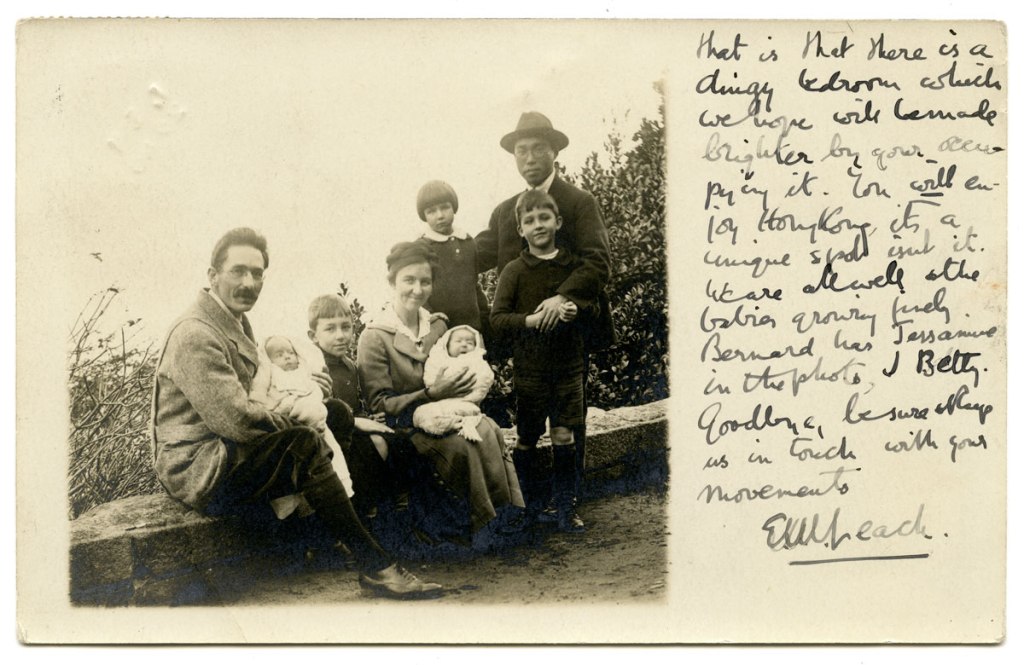 that is that there is a
dingy bedroom which
we hope will be made
brighter by your occu-
pying it. You will en-
joy HongKong, it's a
unique spot isn't it.
We are all well & the
babies growing finely.
Bernard has Jessamine
in the photo, I Betty.
Goodbye, be sure & keep
us in touch with your
movements
E.M. Leach.